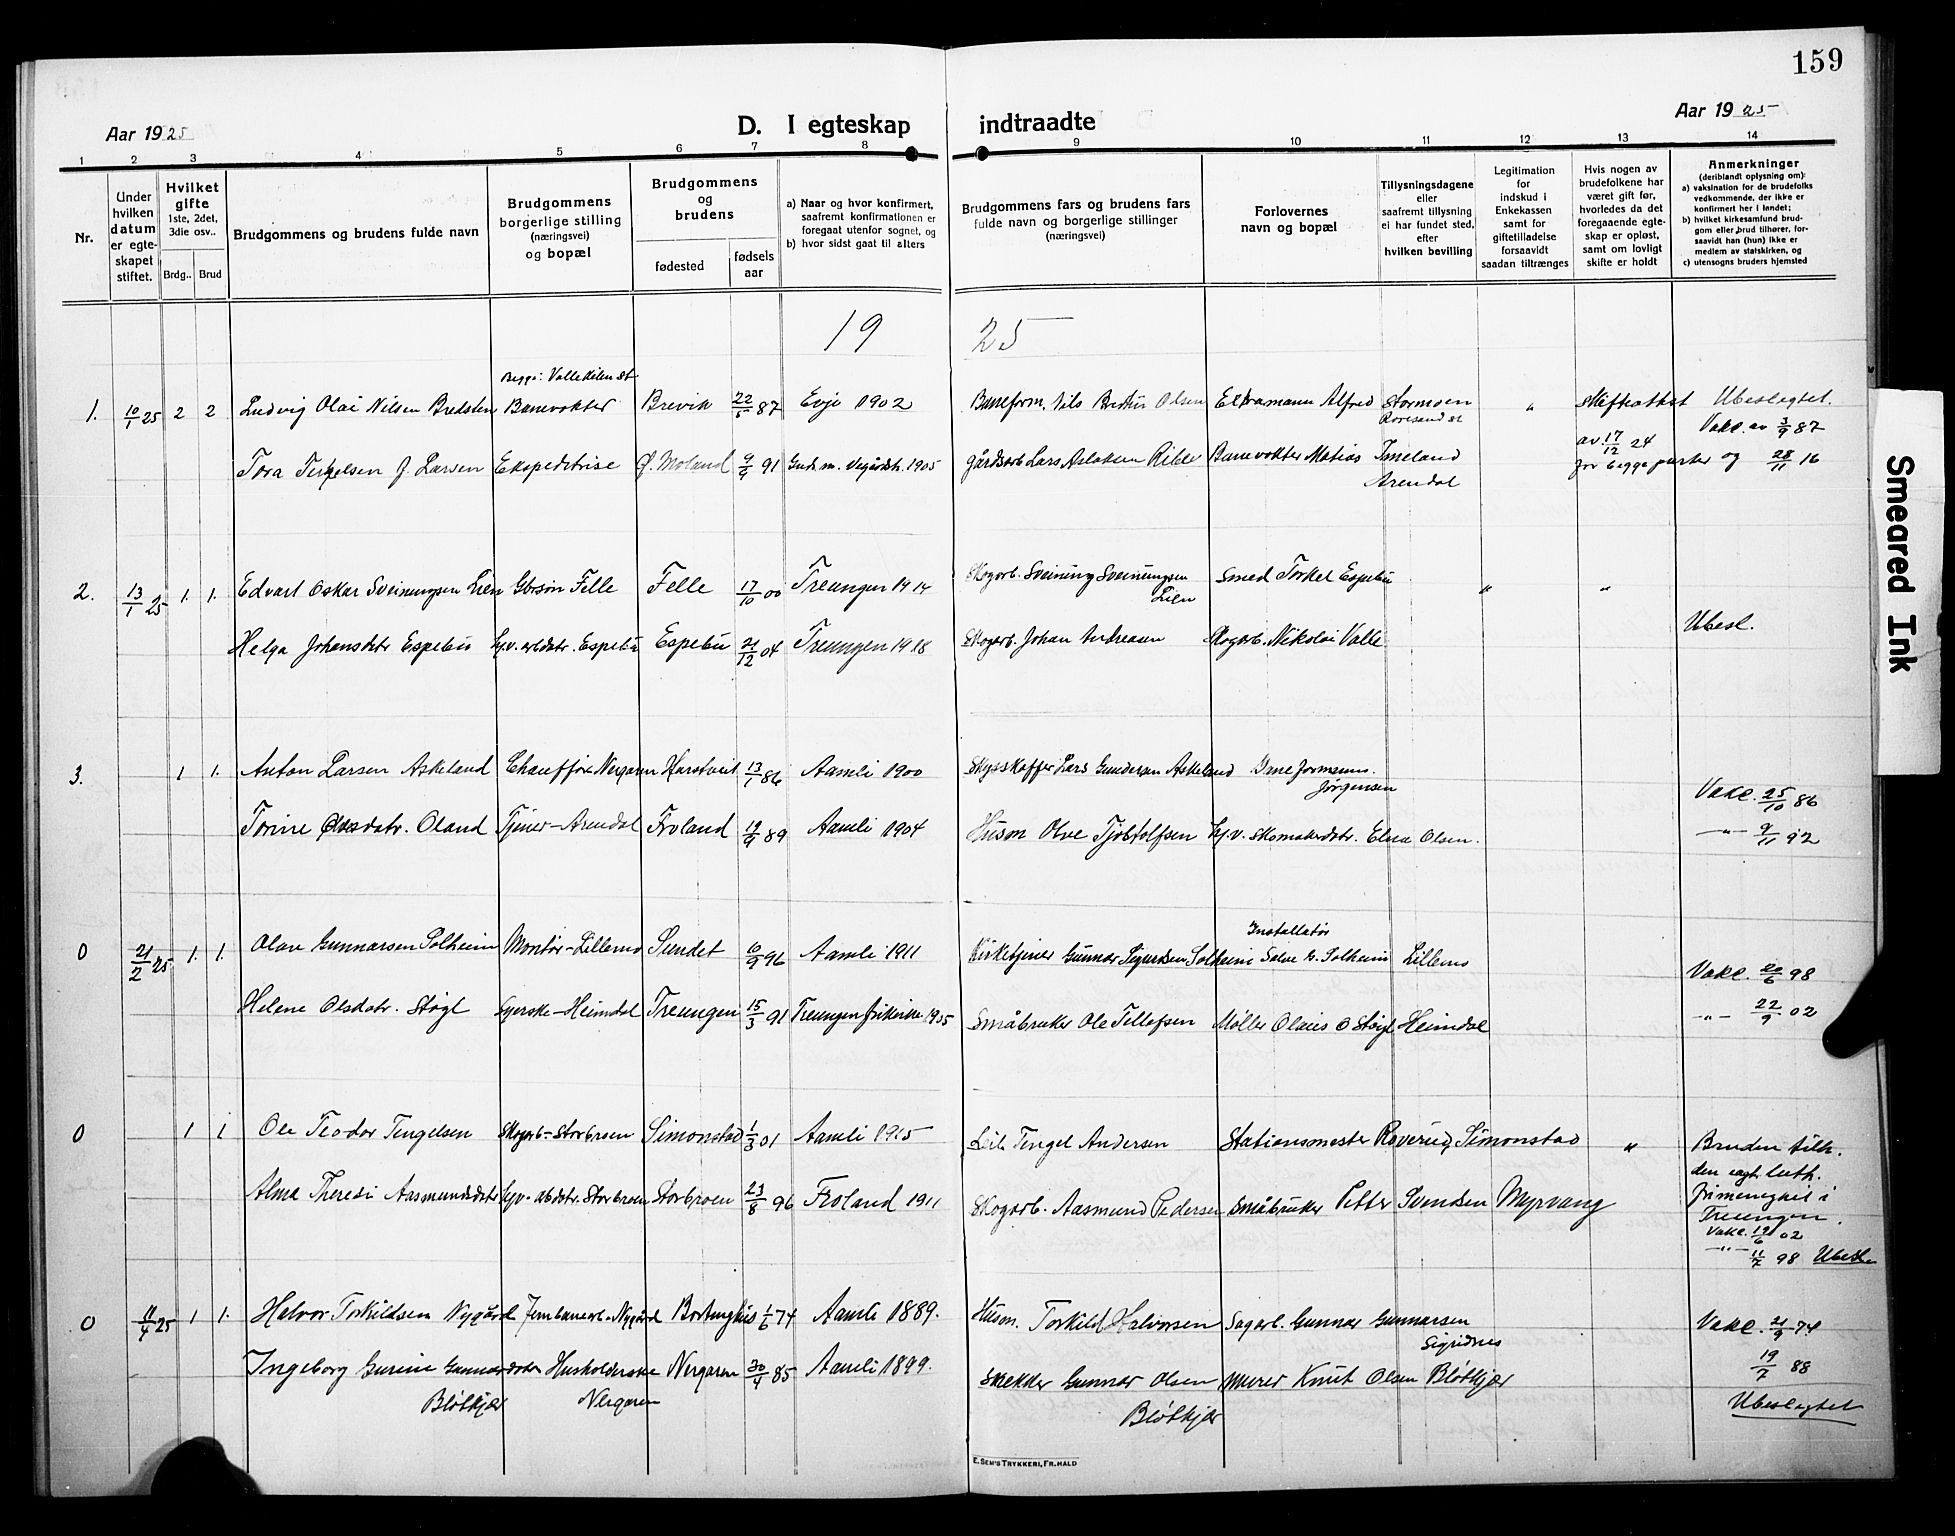 159
Aar 1925
D. I egteskap indtraadte
Aar 1925
1 2 3 4 5 6 7 8 9 10 11 12 13 14
Nr.
Under hvilken datum er egteskapet stiftet.
Hvilket gifte 1ste, 2det, 3die osv..
Brdg.. Brud
Brudgommens og brudens fulde navn
Brudgommens borgerlige stilling (næringsvei) og bopæl
Brudgommens og brudens
fødested
fødsels aar
a) Naar og hvor konfirmert, saafremt konfirmationen er foregaat utenfor sognet, og
b) hvor sidst gaat til alters
Brudgommens fars og brudens fars fulde navn og borgerlige stillinger (næringsvei)
Forlovernes navn og bopæl
Tillysningsdagene eller saafremt tillysning ei har fundet sted, efter hvilken bevilling
Legitimation for indskud i Enkekassen samt for giftetilladelse forsaavidt saadan tiltrænges
Hvis nogen av brudefolkene har været gift før, hvorledes da det foregaaende egteskap er opløst, samt om lovligt skifte er holdt
Anmerkninger (deriblandt oplysning om):
a) vaksination for de brudefolks vedkommende, der ikke er konfirmert her i landet;
b) hvilket kirkesamfund brudgom eller brud tilhører, forsaavidt han (hun) ikke er medlem av statskirken, og
c) utensogns bruders hjemsted
19 25
Begge: Vallekilen st
1. 10/1 25 2 2 Ludvig Olai Nilsen Bredsten Banevokter Brevik 22/5 87 Evje 1902 Baneform. Nils Olsen Alfred Stormoen " Skifteattest Ubeslegtet.
Roresand st av 17/12 24 Vakc. av 3/9 87
Tora Terkelsen f. Larsen Ekspeditrise Ø. Moland 9/9 91 Gudsm. Vegårdsh. 1905 Gårdarb Lars Aslaksen Ribe Banevokter Matias Imeland for begge parter og 28/11 16
Arendal
2. 13/1 25 1. 1. Edvart Oskar Sveinungsen Lien Gbrsøn Felle Felle 17/10 00 Treungen 1914 Skogarb. Sveinung Sveinungsen Smed Torkel Espebu " "
Lien
Helga Johansdatr Espebu hj.v. arbdatr. Espebu Espebu 21/12 04 Treungen 1918 Skogarb. Johan Andreasen Skogarb. Nikolai Valle Ubesl.
3. 1 1. Anton Larsen Askeland Chauffør Nergaren Harstveit 13/1 86 Aamli 1900 Skysskaffer Lars Gundersen Askeland
Jørgensen Vakc. 25/10 86
Torine Olvesdatr. Oland Tjener - Arendal Froland 19/9 89 Aamli 1904 Husm Olve Tjøstolfsen hj.v. skomakerdatr. Elna Olsen. -"- 9/11 92
Installatør
0 21/2 25 1. 1. Olav Gunnarsen Solheim Montør - Lillemo Sundet 10/9 96 Aamli 1911 Kirketjener Gunnar Sigurdsen Solheim Salve G. Solheim Lillemo Vakc. 20/6 98
Helene Olsdatr. Støyl Syerske - Heimdal Treungen 15/3 91 Treungen frikirke 1905 Småbruker Ole Tellefsen Møller Olaus O Støyl Heimdal -"- 22/9 02
0 1 1 Ole Teodor Tengelsen Skogarb - Storbroen Simonstad 1/3 01 Aamli 1915 Tengel Andersen Stationsmester Roverud, Simonstad " Bruden tilh.
den evgl. luth. frimenighet i Treungen.
Alma Theresi Aasmundsdatr hj.v. abdatr. Storbroen Storbroen 23/8 96 Froland 1911 Skogarb. Aasmund Pedersen Småbruker Petter Svendsen Myrvang
Vakc. 19/6 02
-"- 11/7 98 Ubesl.
0 11/4 25 1 1. Halvor Torkildsen Nygård Jernbanearb. Nygård 1/6 74 Aamli 1889. Husm. Torkild Halvorsen Sagarb. Gunnar Gunnarsen Vakc. 21/9 74
Sigridnes
Ingeborg Gurine Gunnarsdatr Husholderske Nergaren 30/4 85 Aamli 1899. Skrædder Gunnar Olsen Murer Knut Olsen Bløtkjær 19/7 88
Bløtkjær Nergaren Bløtkjær Ubeslegtet
E. SEM'S TRYKKERI, FR.HALD
Smeared Ink